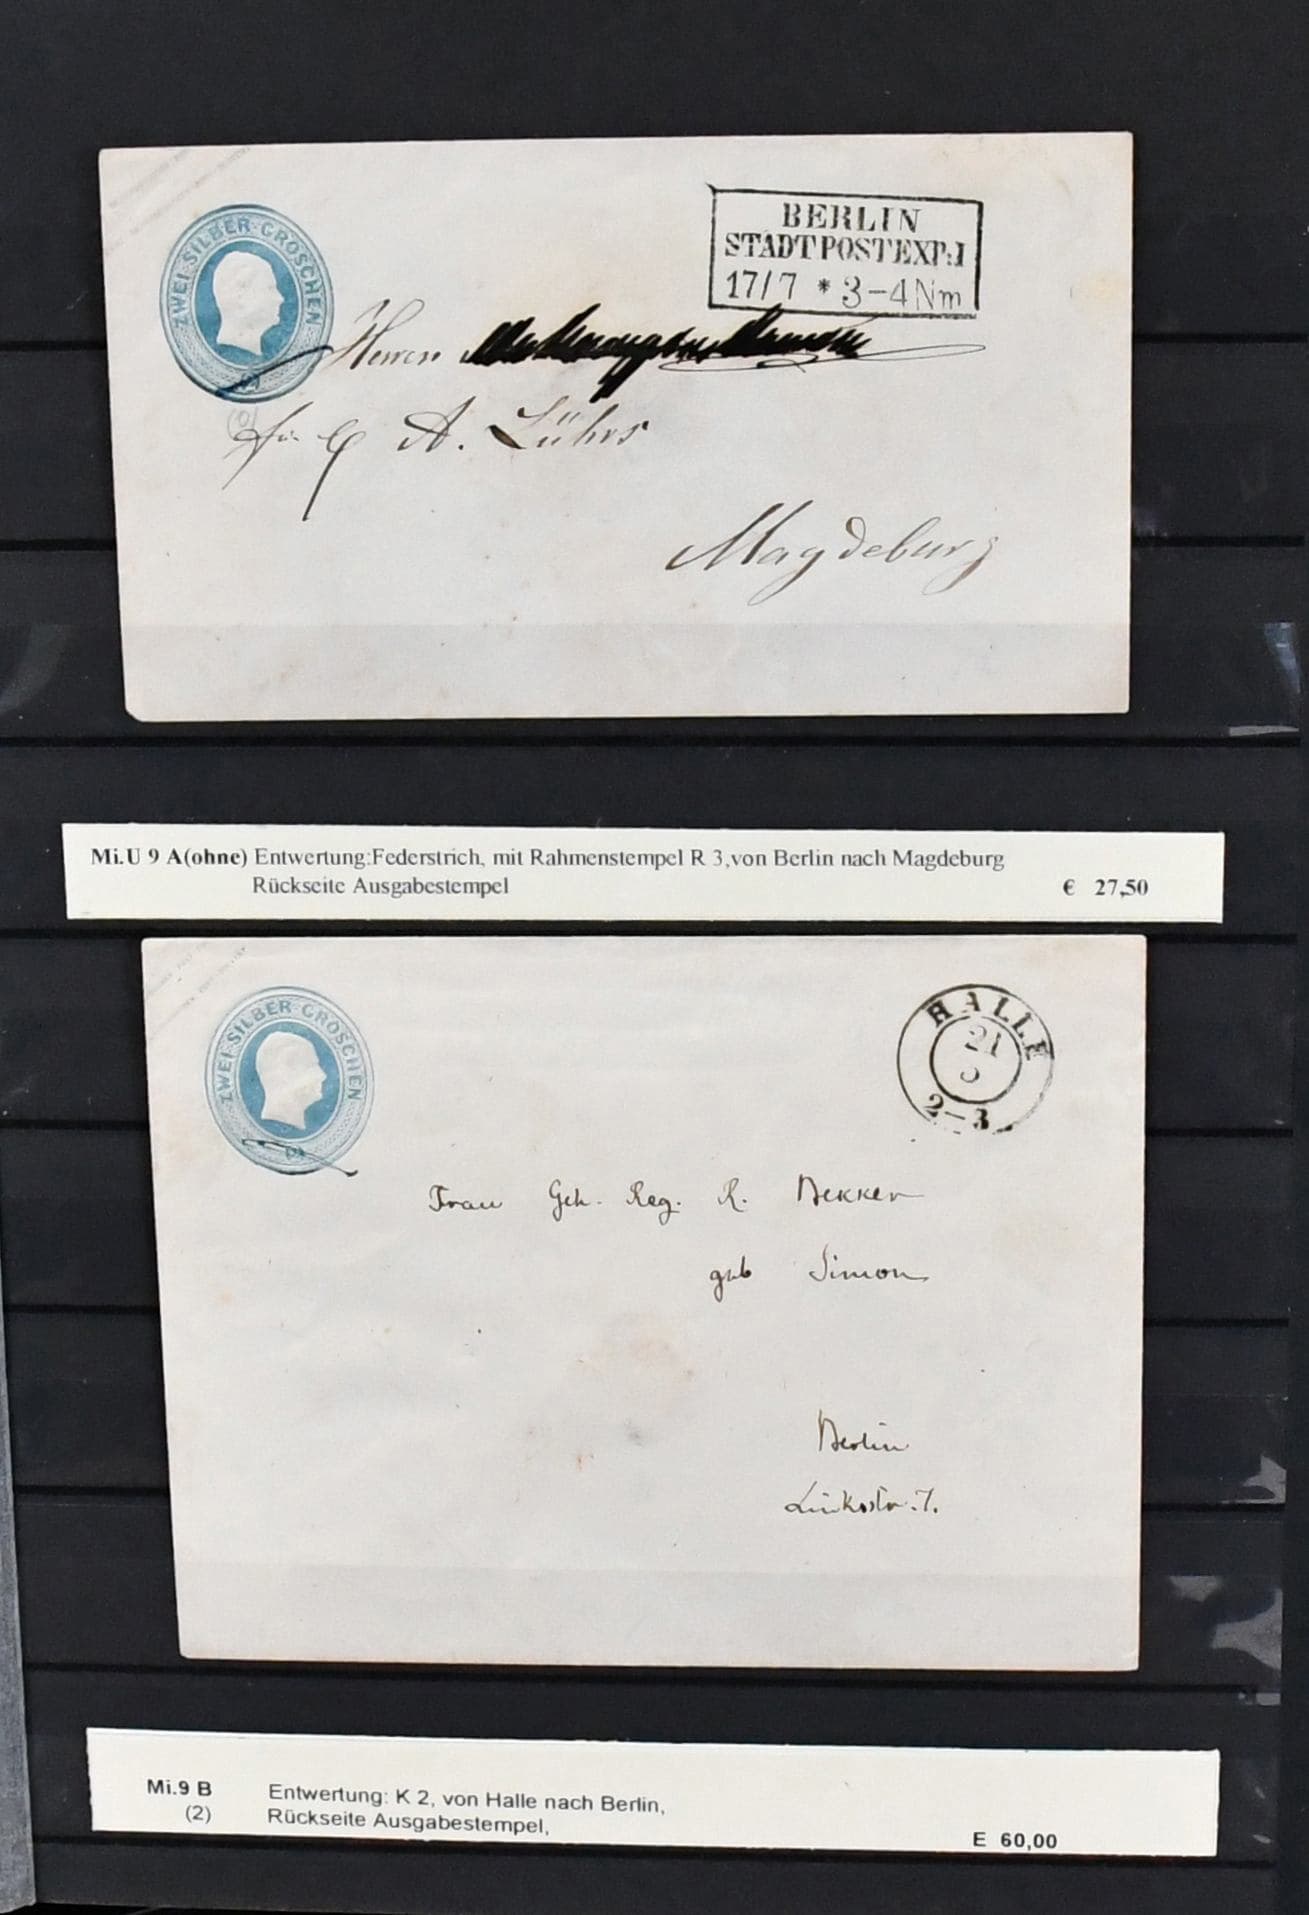 ZWEI SILBER GROSCHEN
BERLIN
STADTPOSTEXP:I
17/7 * 3-4 Nm
Herrn
für A. Lührs
Magdeburg
Mi.U 9 A(ohne) Entwertung:Federstrich, mit Rahmenstempel R 3,von Berlin nach Magdeburg
Rückseite Ausgabestempel € 27,50
ZWEI SILBER GROSCHEN
HALLE
21
2-3
Frau Geh. Reg. R. Dekker
geb Simon
Berlin
Linkstr. 7.
Mi.9 B Entwertung: K 2, von Halle nach Berlin,
(2) Rückseite Ausgabestempel,
E 60,00